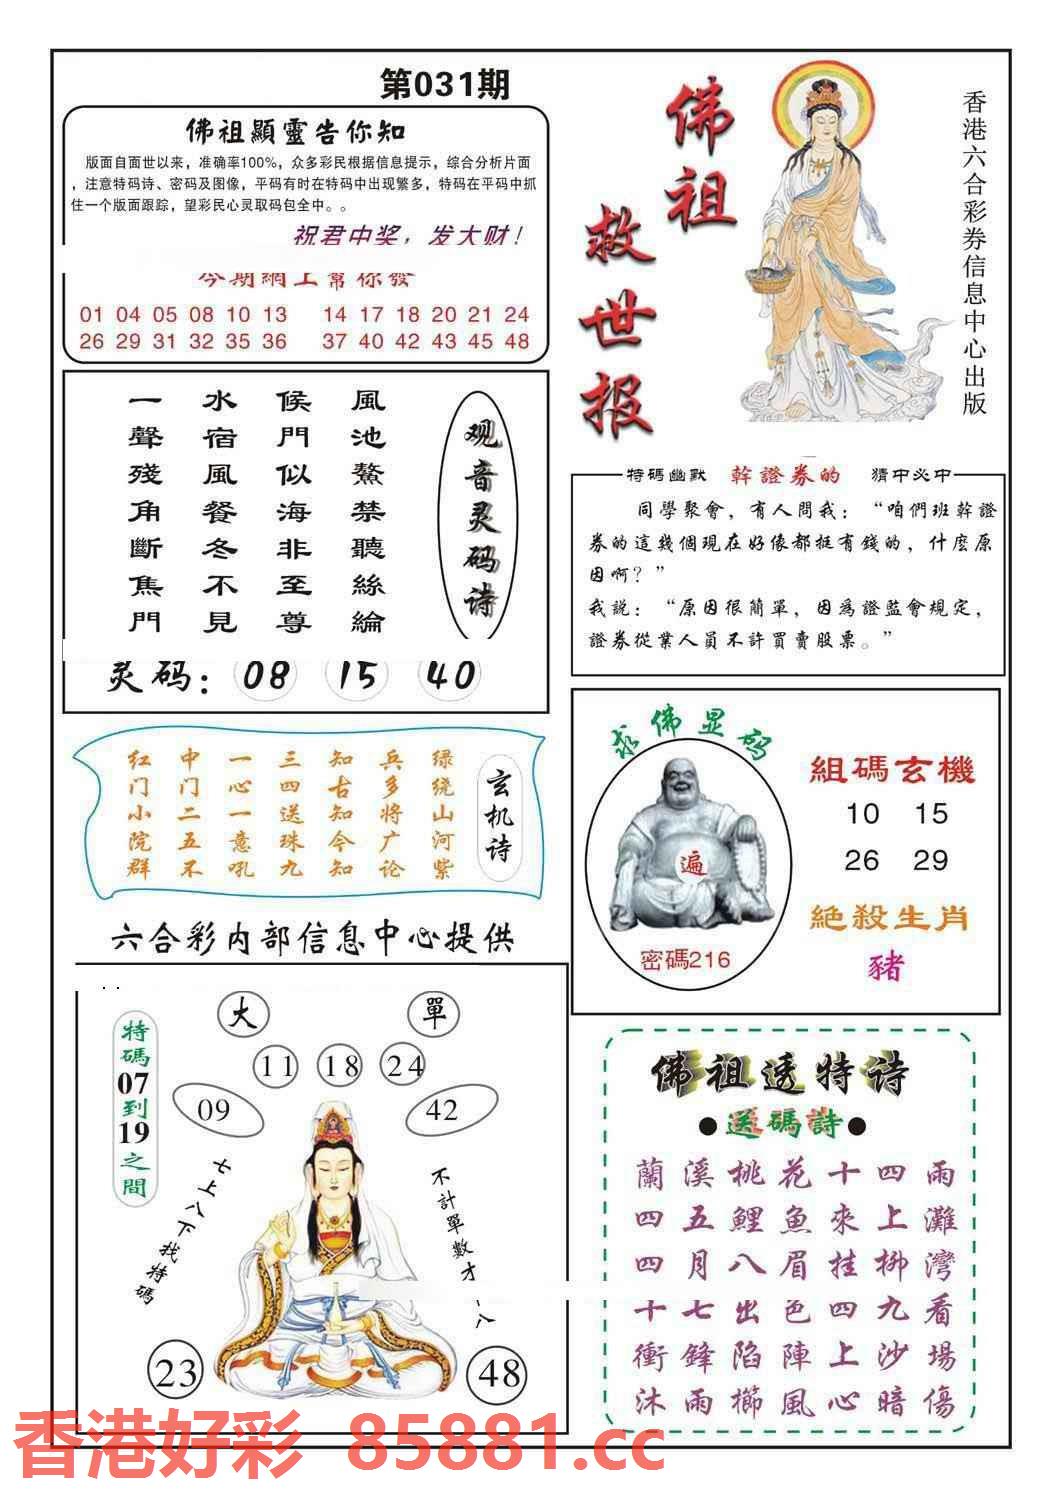 第031期
佛祖顯靈告你知
版面自面世以来，准确率100%，众多彩民根据信息提示，综合分析片面
，注意特码诗、密码及图像，平码有时在特码中出现繁多，特码在平码中抓
住一个版面跟踪，望彩民心灵取码包全中。。
祝君中奖，发大财！
今期網上幫你發
01 04 05 08 10 13 14 17 18 20 21 24
26 29 31 32 35 36 37 40 42 43 45 48
佛祖救世报
香港六合彩券信息中心出版
風池鰲禁聽絲綸
候門似海非至尊
水宿風餐冬不見
一聲殘角斷焦門
观音灵码诗
灵码：08 15 40
特碼幽默 幹證券的 猜中必中
同學聚會，有人問我：“咱們班幹證
券的這幾個現在好像都挺有錢的，什麼原
因啊？”
我説：“原因很簡單，因爲證監會規定，
證券從業人員不許買賣股票。”
玄机诗
绿绕山河紫
兵多将广论
知古知今知
三四送珠九
一心一意吼
中门二五不
红门小院群
求佛显码
遍
密碼216
組碼玄機
10 15
26 29
絕殺生肖
豬
六合彩内部信息中心提供
特碼07到19之間
大 單
11 18 24
09 42
七上八下找特碼
不計單數才
八
23 48
佛祖透特诗
●送碼詩●
蘭溪桃花十四雨
四五鯉魚來上灘
四月八眉挂柳灣
十七出色四九看
衝鋒陷陣上沙場
沐雨櫛風心暗傷
香港好彩 85881.cc